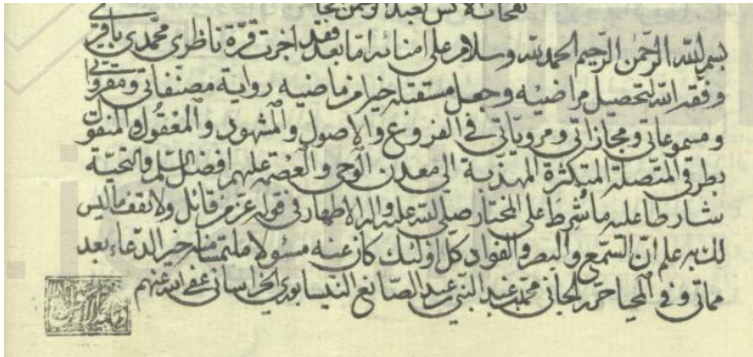 بسم الله الرحمن الرحيم الحمد لله وسلام على امنائه اما بعد فقد اجزت قرة ناظري محمدي باقري
وفقه الله لتحصيل مراضيه وجعل مستقبله خيرا من ماضيه رواية مصنفاتي ومقروئي
ومسموعاتي ومجازاتي ومروياتي في الفروع والاصول والمشهود والمعقول والمنقول
بطرقي المتصلة المتكثرة المهذبة الى معدن الوحي والعصمة عليهم افضل السلم والتحية
شارطا عليه ما شرط على المختار صلى الله عليه واله الاطهار في قوله عز من قائل ولا تقف ما ليس
لك به علم ان السمع والبصر والفؤاد كل اولئك كان عنه مسئولا ملتمسا منه خير الدعاء بعد
مماتي وفي المحيا حرره الجاني محمد عبد النبي بن عبد الصانع النيسابوري الخراساني عفى الله عنهم